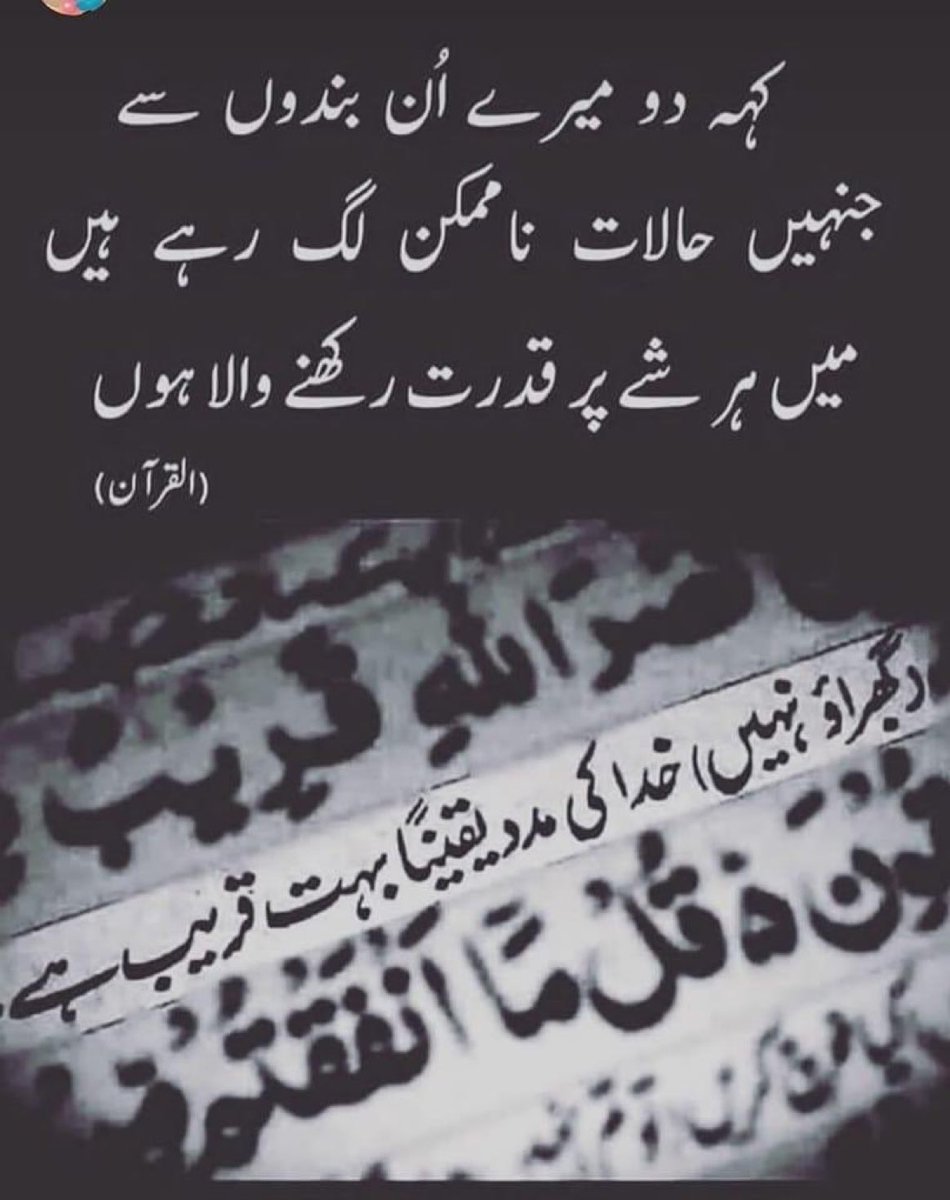 کہہ دو میرے اُن بندوں سے
جنہیں حالات ناممکن لگ رہے ہیں
میں ہر شے پر قدرت رکھنے والا ہوں
(القرآن)
اللهِ قَرِيْبٌ
(گھبراؤ نہیں) خدا کی مدد یقیناً بہت قریب ہے
قُلْ مَآ اَنْفَقْتُمْ